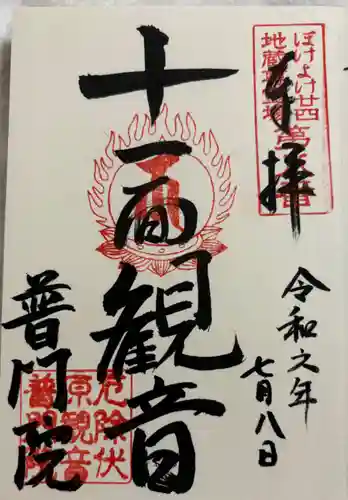 奉拝
令和六年
七月八日
十一面観音
普門院
ぼけよけ廿四
地蔵
厄除伏
原観音
普門院